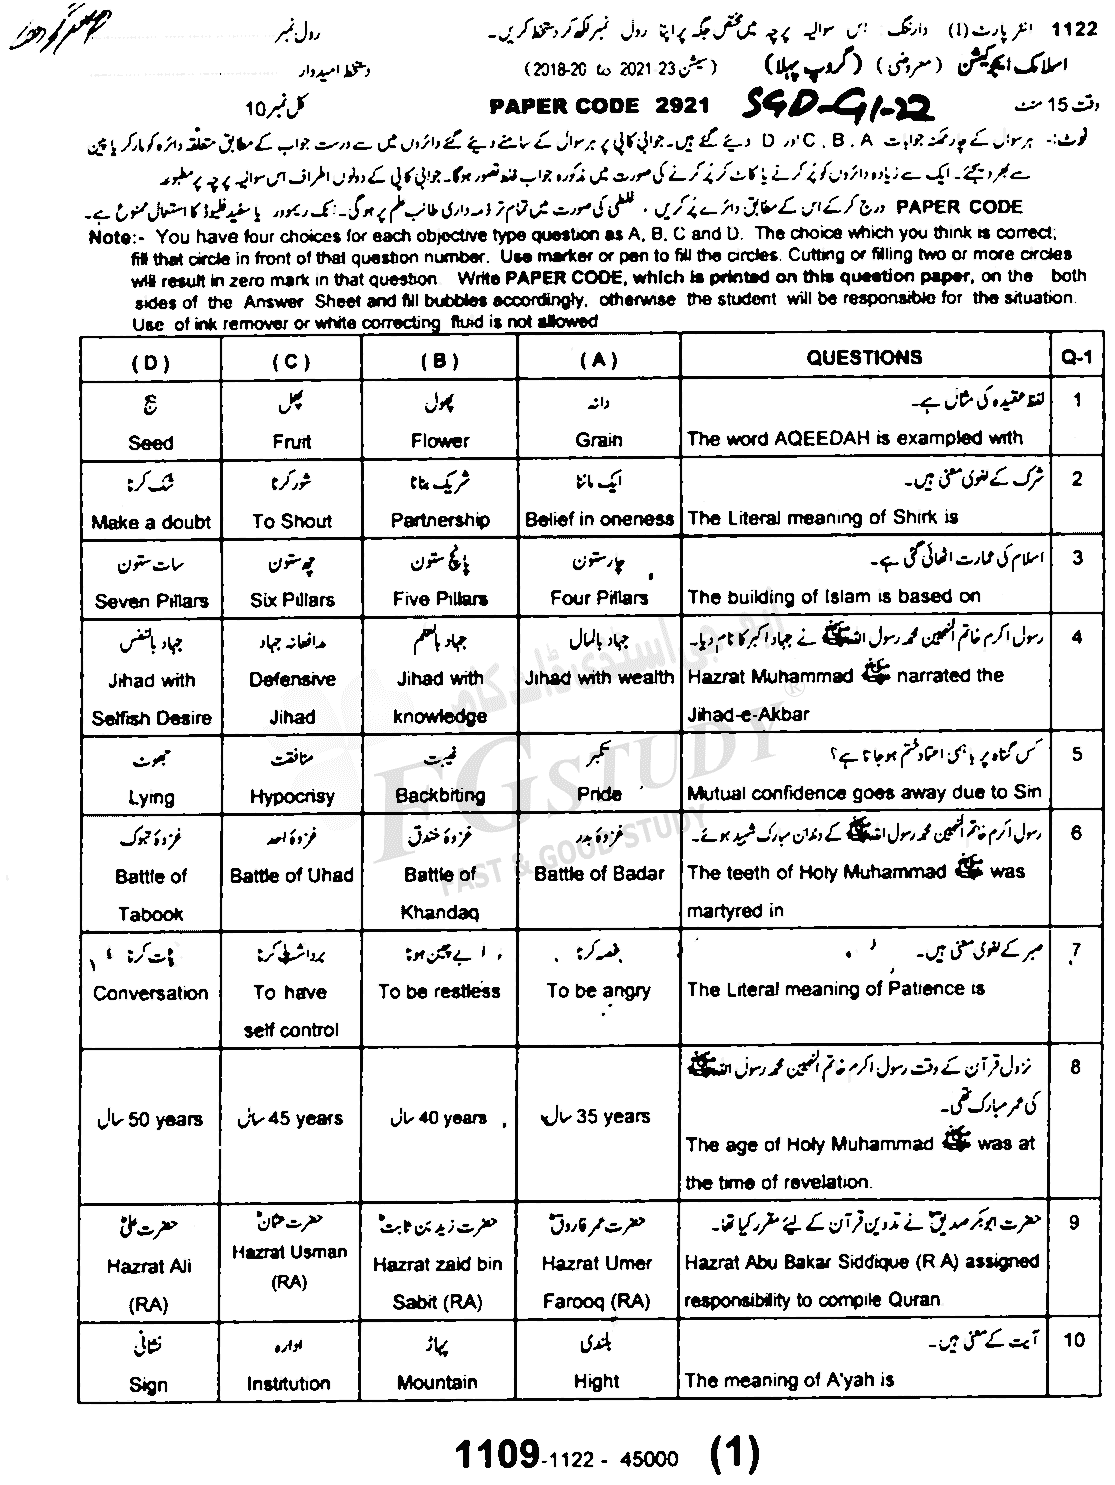 1122 انٹر پارٹ (I) وارننگ: اس سوالیہ پرچہ میں مختص جگہ پر اپنا رول نمبر لکھ کر دستخط کریں۔ رول نمبر
اسلامک ایجوکیشن (معروضی) (گروپ پہلا) (سیشن 23-2021 تا 20-2018) دستخط امیدوار
وقت 15 منٹ SGD-G1-22 PAPER CODE 2921 کل نمبر 10
نوٹ:- ہر سوال کے چار ممکنہ جوابات A ، B ، C اور D دیئے گئے ہیں۔ جوابی کاپی پر ہر سوال کے سامنے دیئے گئے دائروں میں سے درست جواب کے مطابق متعلقہ دائرہ کو مارکر یا پین
سے بھر دیجئے۔ ایک سے زیادہ دائروں کو پُر کرنے یا کاٹ کر پُر کرنے کی صورت میں مذکورہ جواب غلط تصور ہوگا۔ جوابی کاپی کے دونوں اطراف اس سوالیہ پرچہ پر مطبوعہ
PAPER CODE درج کر کے اس کے مطابق دائرے پُر کریں ، غلطی کی صورت میں تمام تر ذمہ داری طالب علم پر ہوگی۔ انک ریموور یا سفید فلیوڈ کا استعمال ممنوع ہے۔
Note:- You have four choices for each objective type question as A, B, C and D. The choice which you think is correct;
fill that circle in front of that question number. Use marker or pen to fill the circles. Cutting or filling two or more circles
will result in zero mark in that question. Write PAPER CODE, which is printed on this question paper, on the both
sides of the Answer Sheet and fill bubbles accordingly, otherwise the student will be responsible for the situation.
Use of ink remover or white correcting fluid is not allowed
(D) (C) (B) (A) QUESTIONS Q-1
بیج پھل پھول دانہ لفظ عقیدہ کی مثال ہے۔ 1
Seed Fruit Flower Grain The word AQEEDAH is exampled with
شک کرنا شور کرنا شریک بنانا ایک ماننا شرک کے لغوی معنی ہیں۔ 2
Make a doubt To Shout Partnership Belief in oneness The Literal meaning of Shirk is
سات ستون چھ ستون پانچ ستون چار ستون اسلام کی عمارت اٹھائی گئی ہے۔ 3
Seven Pillars Six Pillars Five Pillars Four Pillars The building of Islam is based on
جہاد بالنفس مدافعانہ جہاد جہاد بالعلم جہاد بالمال رسول اکرم خاتم النبیین محمد رسول اللہ ﷺ نے جہاد اکبر کا نام دیا۔ 4
Jihad with Defensive Jihad with Jihad with wealth Hazrat Muhammad ﷺ narrated the
Selfish Desire Jihad knowledge Jihad-e-Akbar
جھوٹ منافقت غیبت تکبر کس گناہ پر باہمی اعتماد ختم ہو جاتا ہے؟ 5
Lying Hypocrisy Backbiting Pride Mutual confidence goes away due to Sin
غزوۂ تبوک غزوۂ احد غزوۂ خندق غزوۂ بدر رسول اکرم خاتم النبیین محمد رسول اللہ ﷺ کے دندان مبارک شہید ہوئے۔ 6
Battle of Battle of Uhad Battle of Battle of Badar The teeth of Holy Muhammad ﷺ was
Tabook Khandaq martyred in
بات کرنا برداشت کرنا بے چین ہونا غصہ کرنا صبر کے لغوی معنی ہیں۔ 7
Conversation To have To be restless To be angry The Literal meaning of Patience is
self control
نزول قرآن کے وقت رسول اکرم خاتم النبیین محمد رسول اللہ ﷺ 8
کی عمر مبارک تھی۔
50 years سال 45 years سال 40 years سال 35 years سال The age of Holy Muhammad ﷺ was at
the time of revelation.
حضرت علیؓ حضرت عثمانؓ حضرت زید بن ثابتؓ حضرت عمر فاروقؓ حضرت ابوبکر صدیقؓ نے تدوین قرآن کے لیئے مقرر کیا تھا۔ 9
Hazrat Ali Hazrat Usman Hazrat zaid bin Hazrat Umer Hazrat Abu Bakar Siddique (R A) assigned
(RA) (RA) Sabit (RA) Farooq (RA) responsibility to compile Quran
نشانی ادارہ پہاڑ بلندی آیت کے معنی ہیں۔ 10
Sign Institution Mountain Hight The meaning of A'yah is
FG STUDY ®
FAST & GOOD STUDY
1109-1122 - 45000 (1)